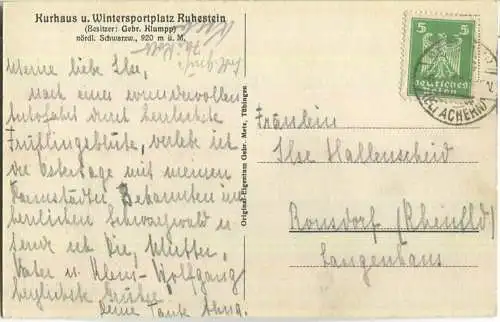 Kurhaus u. Wintersportplatz Ruhestein
(Besitzer: Gebr. Klumpp)
nördl. Schwarzw., 920 m ü. M.
Meine liebe Ilse,
nach einer wundervollen
Autofahrt durch herrlichste
Frühlingsblüte, verlebe ich
die Ostertage mit meinen
Darmstädter Bekannten im
herrlichen Schwarzwald u
sende ich Dir, Mutter,
Vater u. Klaus-Wolfgang
herzlichste Grüße
Deine Tante Anna.
Original-Eigentum Gebr. Metz, Tübingen
5 5
Deutsches
Reich
ACHERN
Fräulein
Ilse Hallenscheid
Ronsdorf (Rheinlld)
Langenhaus